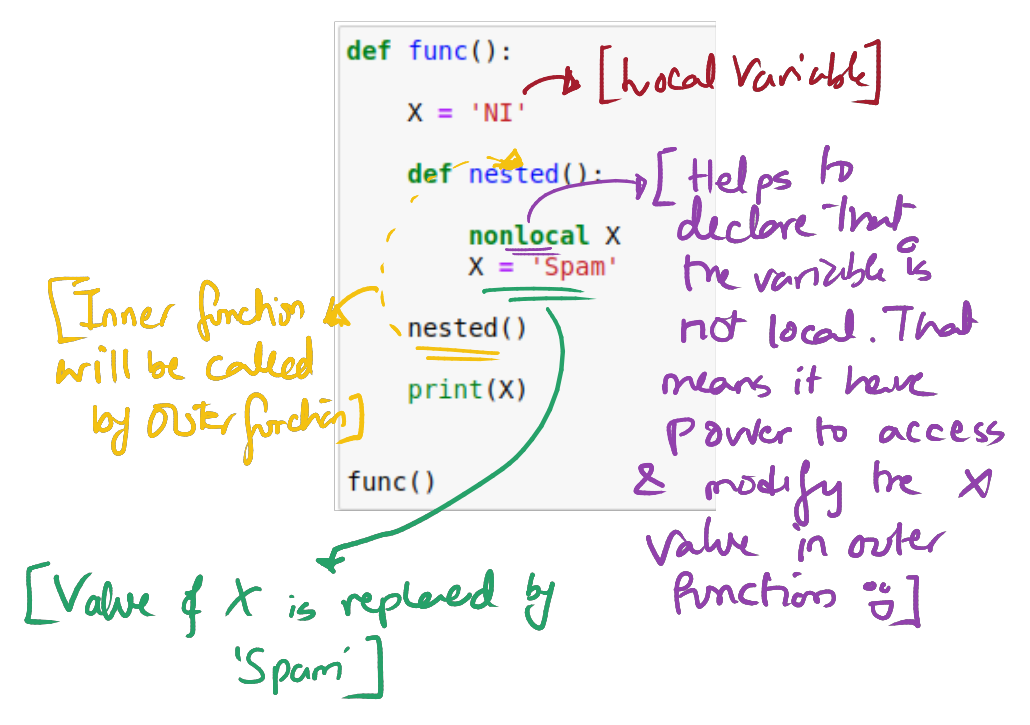 def func():
X = 'NI'
def nested():
nonlocal X
X = 'Spam'
nested()
print(X)
func()
[Local Variable]
[Helps to
declare that
the variable is
not local. That
means it have
power to access
& modify the X
value in outer
function]
[Inner function
will be called
by outer function]
[Value of X is replaced by
'Spam']